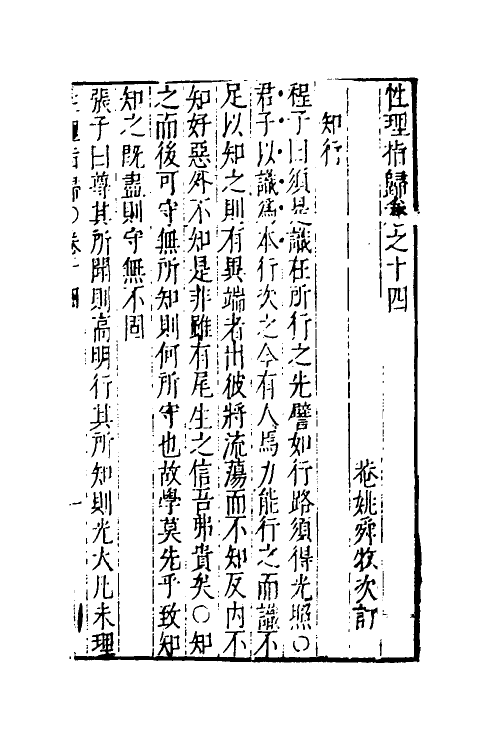 性理指歸卷之十四
菴姚舜牧次訂
知行
程子曰須是識在所行之先譬如行路須得光照○
君子以識爲本行次之今有人焉力能行之而識不
足以知之則有異端者出彼將流蕩而不知反內不
知好惡外不知是非雖有尾生之信吾弗貴矣○知
之而後可守無所知則何所守也故學莫先乎致知
知之既盡則守無不固
張子曰尊其所聞則高明行其所知則光大凡未理
性理指歸○卷十四 一